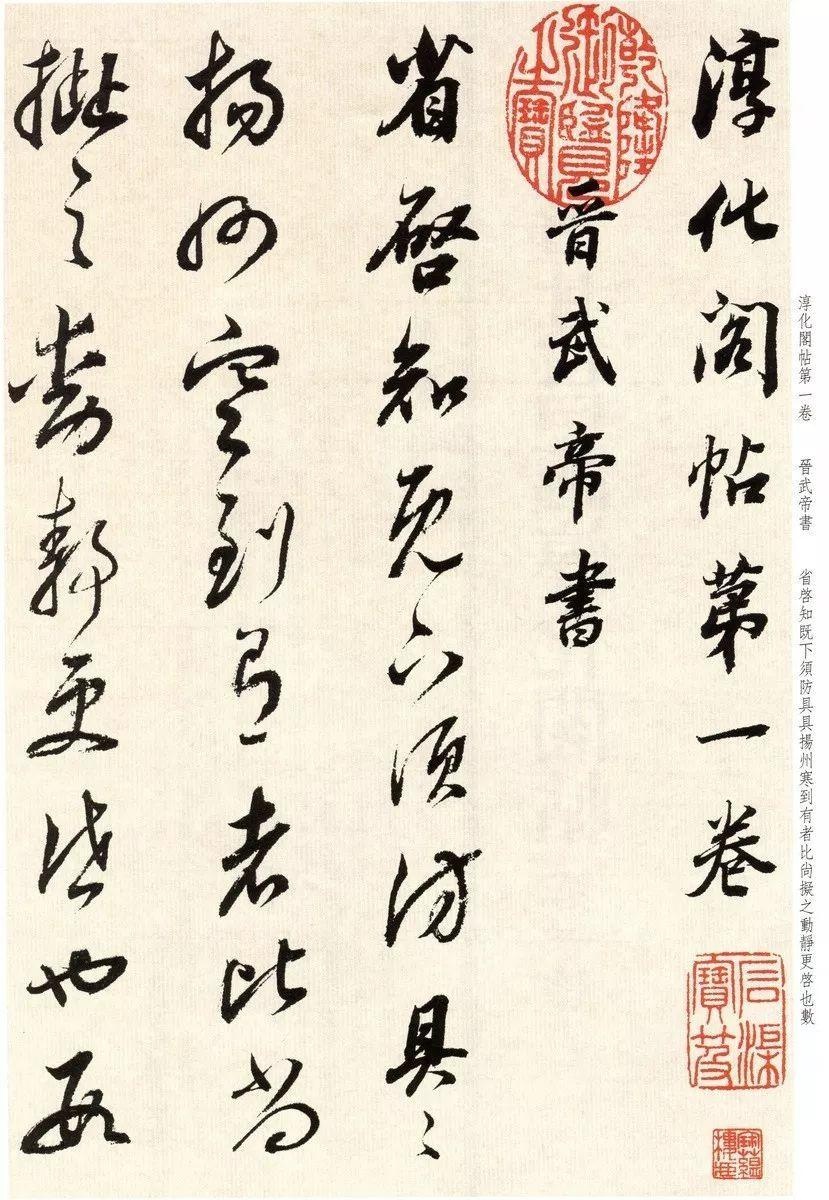 淳化阁帖第一卷
晋武帝書
省啓知既下須防具〻
揚州寒到有者比尚
擬之動靜更啓也數
乾隆御覽之寶
石渠寶笈
淳化閣帖第一卷 晉武帝書 省啓知既下須防具具揚州寒到有者比尚擬之動靜更啓也數